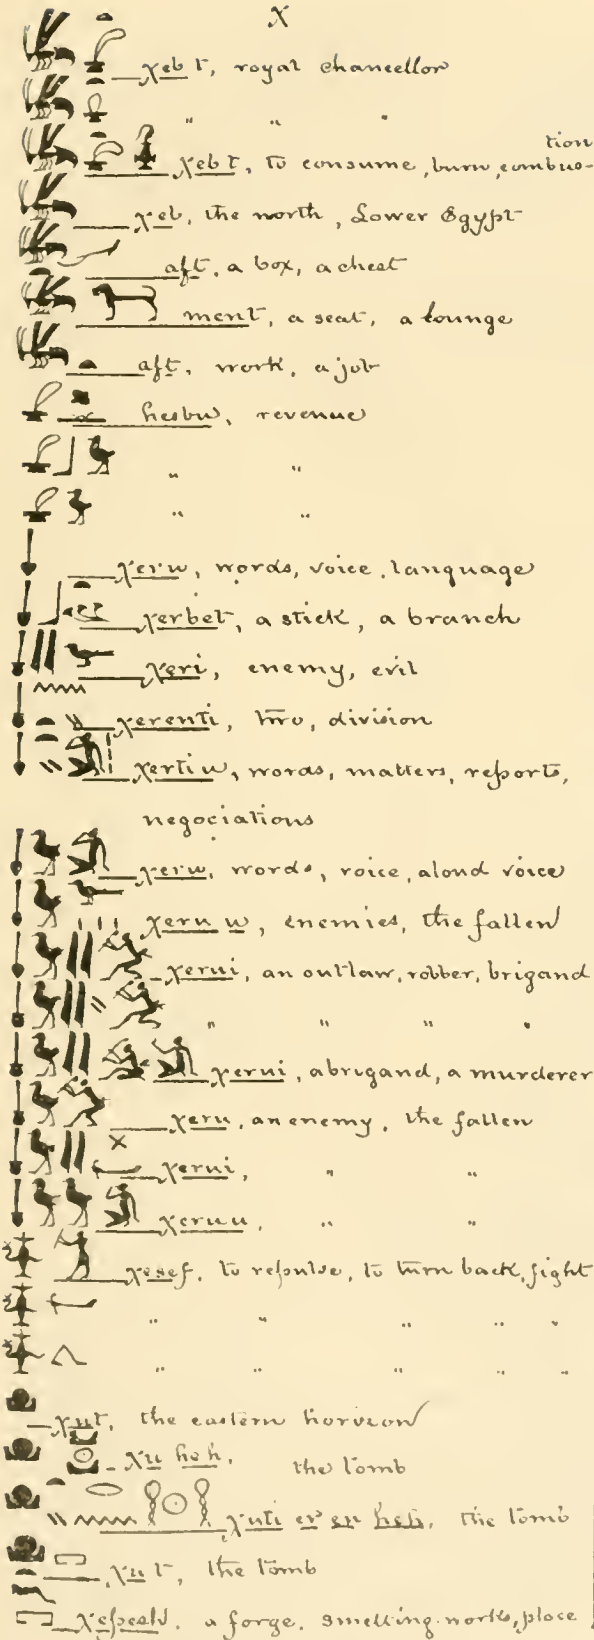 χ
χeb t, royal chancellor
„ „ „
tion
χeb t, to consume, burn, combus-
χeb, the north, Lower Egypt
aft, a box, a chest
ment, a seat, a lounge
aft, work, a job
hesbu, revenue
„ „
„ „
χeru, words, voice, language
χerbet, a stick, a branch
χeri, enemy, evil
χerenti, two, division
χerti u, words, matters, reports,
negociations
χeru, words, voice, a loud voice
χeru u, enemies, the fallen
χerui, an outlaw, robber, brigand
„ „ „ „
χerui, a brigand, a murderer
χeru, an enemy, the fallen
χerui, „ „
χeruu, „ „
χesef, to repulse, to turn back, fight
„ „ „ „ „
„ „ „ „ „
χut, the eastern horizon
χu heh, the tomb
χuti er en heh, the tomb
χu t, the tomb
a forge, smelting works, place